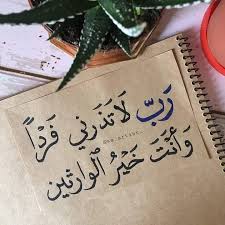 رَبِّ لَا تَذَرْنِي فَرْدًا
وَأَنتَ خَيْرُ الْوَارِثِينَ